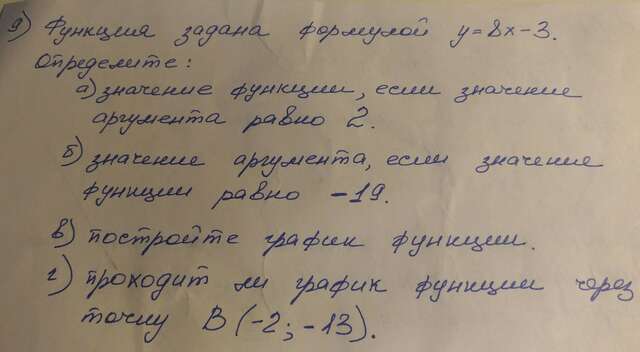 9) Функция задана формулой y=8x-3.
Определите:
а) значение функции, если значение
аргумента равно 2.
б) значение аргумента, если значение
функции равно -19.
в) постройте график функции.
г) проходит ли график функции через
точку B (-2; -13).